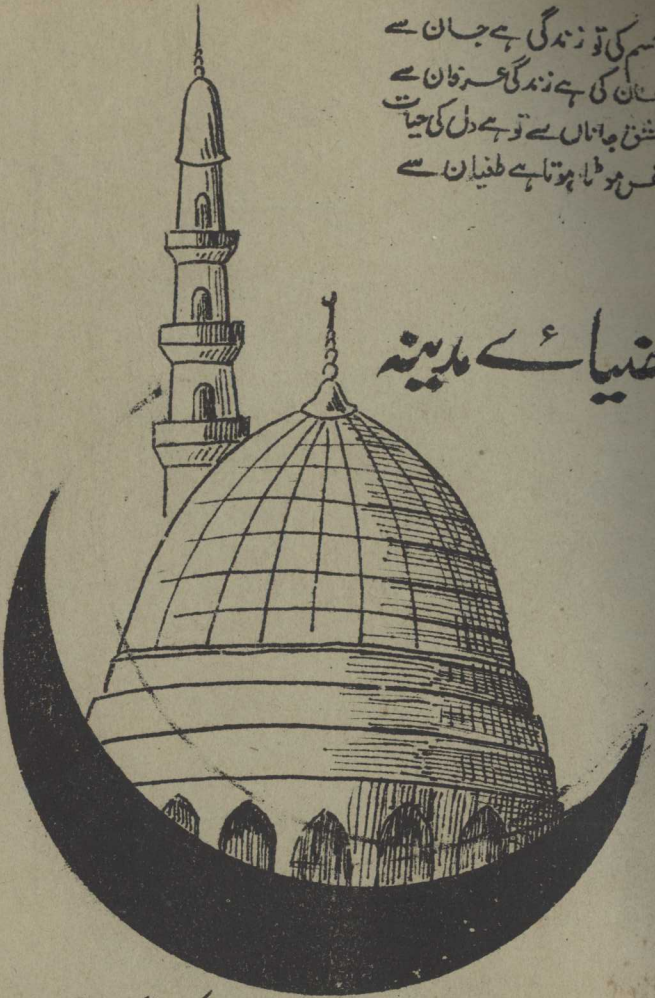 سم کی تو زندگی ہے جان سے
ان کی ہے زندگی عرفان سے
شق جاناں سے تو ہے دل کی حیات
فس موٹا ہوتا ہے طغیان سے
ضیائے مدینہ